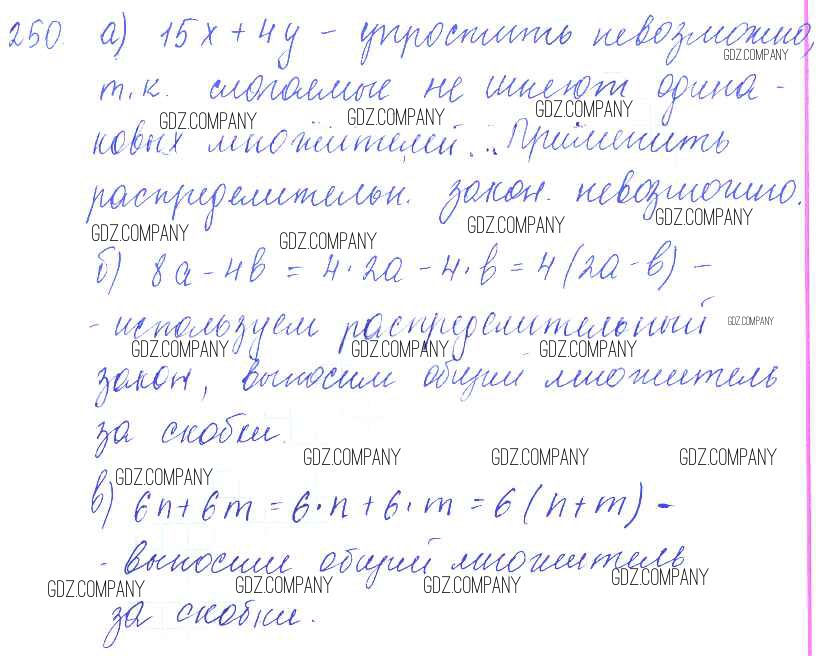 250. а) 15x + 4y - упростить невозможно,
GDZ.COMPANY
т.к. слогаемые не имеют одина -
GDZ.COMPANY GDZ.COMPANY GDZ.COMPANY
ковых множителей... Применить
распределительн. закон. невозможно.
GDZ.COMPANY GDZ.COMPANY GDZ.COMPANY GDZ.COMPANY
б) 8a - 4b = 4·2a - 4·b = 4(2a - b) -
- используем распределительный
GDZ.COMPANY
GDZ.COMPANY GDZ.COMPANY GDZ.COMPANY
закон, выносим общий множитель
за скобки.
GDZ.COMPANY GDZ.COMPANY GDZ.COMPANY GDZ.COMPANY
в) 6n + 6m = 6·n + 6·m = 6(n+m) -
- выносим общий множитель
GDZ.COMPANY GDZ.COMPANY GDZ.COMPANY GDZ.COMPANY
за скобки.